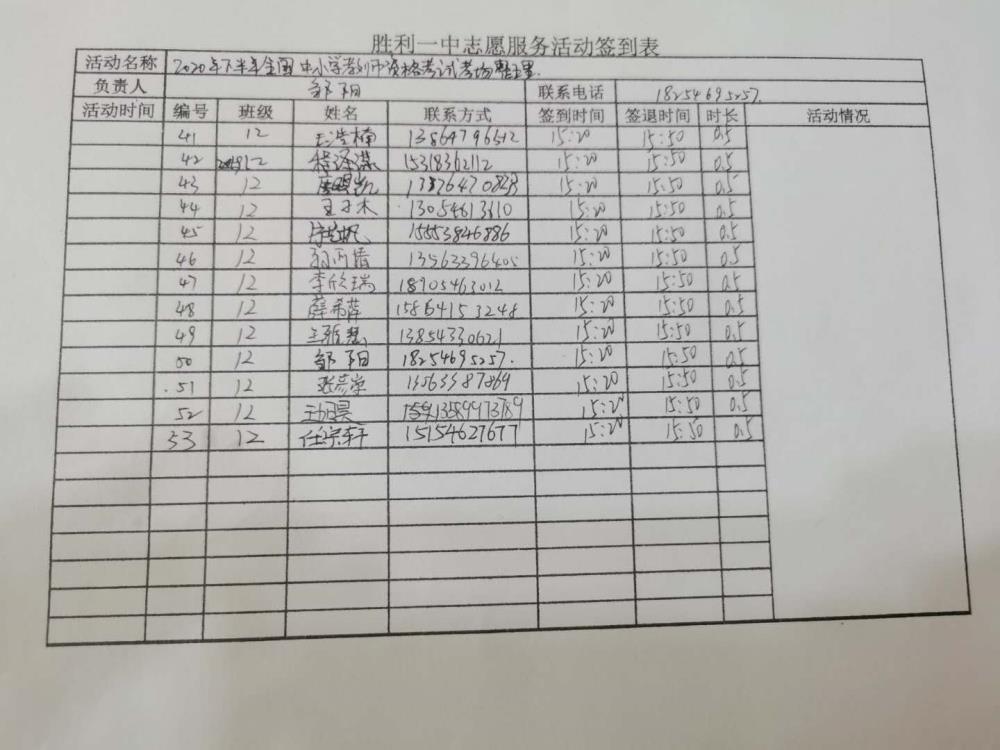 胜利一中志愿服务活动签到表
活动名称 2020年下半年全国中小学教师资格考试考场整理
负责人 邹阳 联系电话 18254695257.
活动时间 编号 班级 姓名 联系方式 签到时间 签退时间 时长 活动情况
41 12 王浩楠 13864796642 15:20 15:50 0.5
42 12 15318362112 15:20 15:50 0.5
43 12 15:20 15:50 0.5
44 12 王子木 13054613610 15:20 15:50 0.5
45 12 15553846886 15:20 15:50 0.5
46 12 13563396405 15:20 15:50 0.5
47 12 李欣瑞 18905463012 15:20 15:50 0.5
48 12 薛希萍 15864153248 15:20 15:50 0.5
49 12 13854330621 15:20 15:50 0.5
50 12 邹阳 18254695257. 15:20 15:50 0.5
51 12 15:20 15:50 0.5
52 12 15:20 15:50 0.5
53 12 任宗轩 15154627677 15:20 15:50 0.5